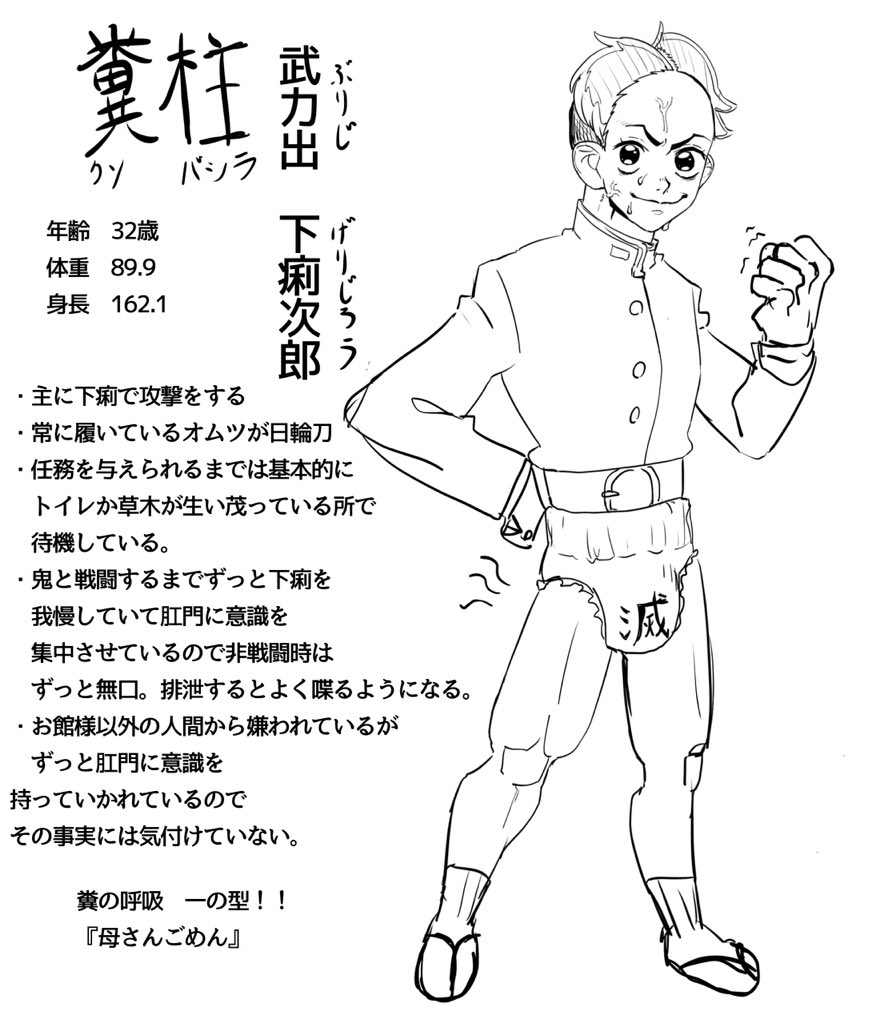 糞柱
クソ バシラ
武力出 下痢次郎
ぶりじ げりじろう
年齢 32歳
体重 89.9
身長 162.1
・主に下痢で攻撃をする
・常に履いているオムツが日輪刀
・任務を与えられるまでは基本的に
トイレか草木が生い茂っている所で
待機している。
・鬼と戦闘するまでずっと下痢を
我慢していて肛門に意識を
集中させているので非戦闘時は
ずっと無口。排泄するとよく喋るようになる。
・お館様以外の人間から嫌われているが
ずっと肛門に意識を
持っていかれているので
その事実には気付けていない。
糞の呼吸 一の型！！
『母さんごめん』
滅